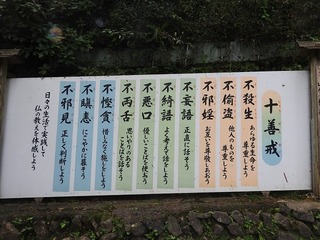 十善戒
不殺生
あらゆる生命を
尊重しよう
不偸盗
他人のものを
尊重しよう
不邪婬
お互いを尊敬しあおう
不妄語
正直に話そう
不綺語
よく考えて話をしよう
不悪口
優しいことばを使おう
不両舌
思いやりのある
ことばを話そう
不慳貪
惜しみなく施しをしよう
不瞋恚
にこやかに暮そう
不邪見
正しく判断しよう
日々の生活で実践して
仏の教えを体感しよう